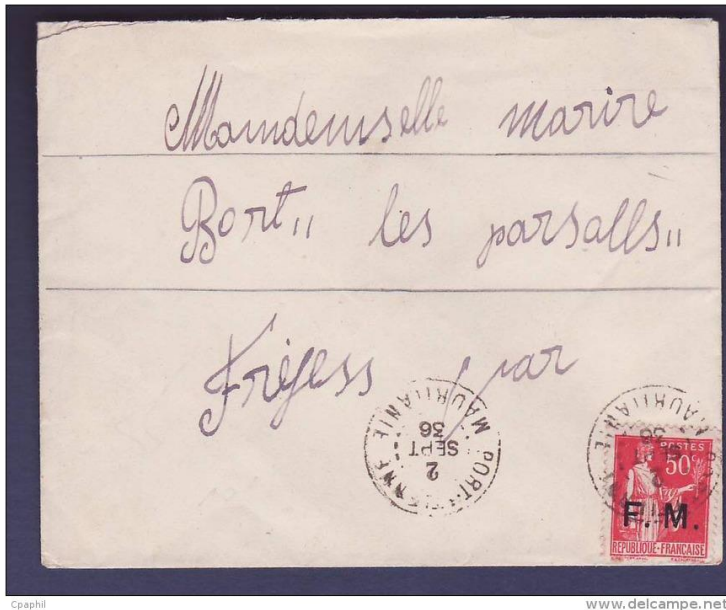 Mamdemselle marire
Bort,, les parsalls,,
Fréjess par
PORT-ETIENNE
2
SEPT
36
MAURITANIE
MAURITANIE
36
POSTES
50c
F. M.
REPUBLIQUE-FRANÇAISE
Cpaphil
www.delcampe.net